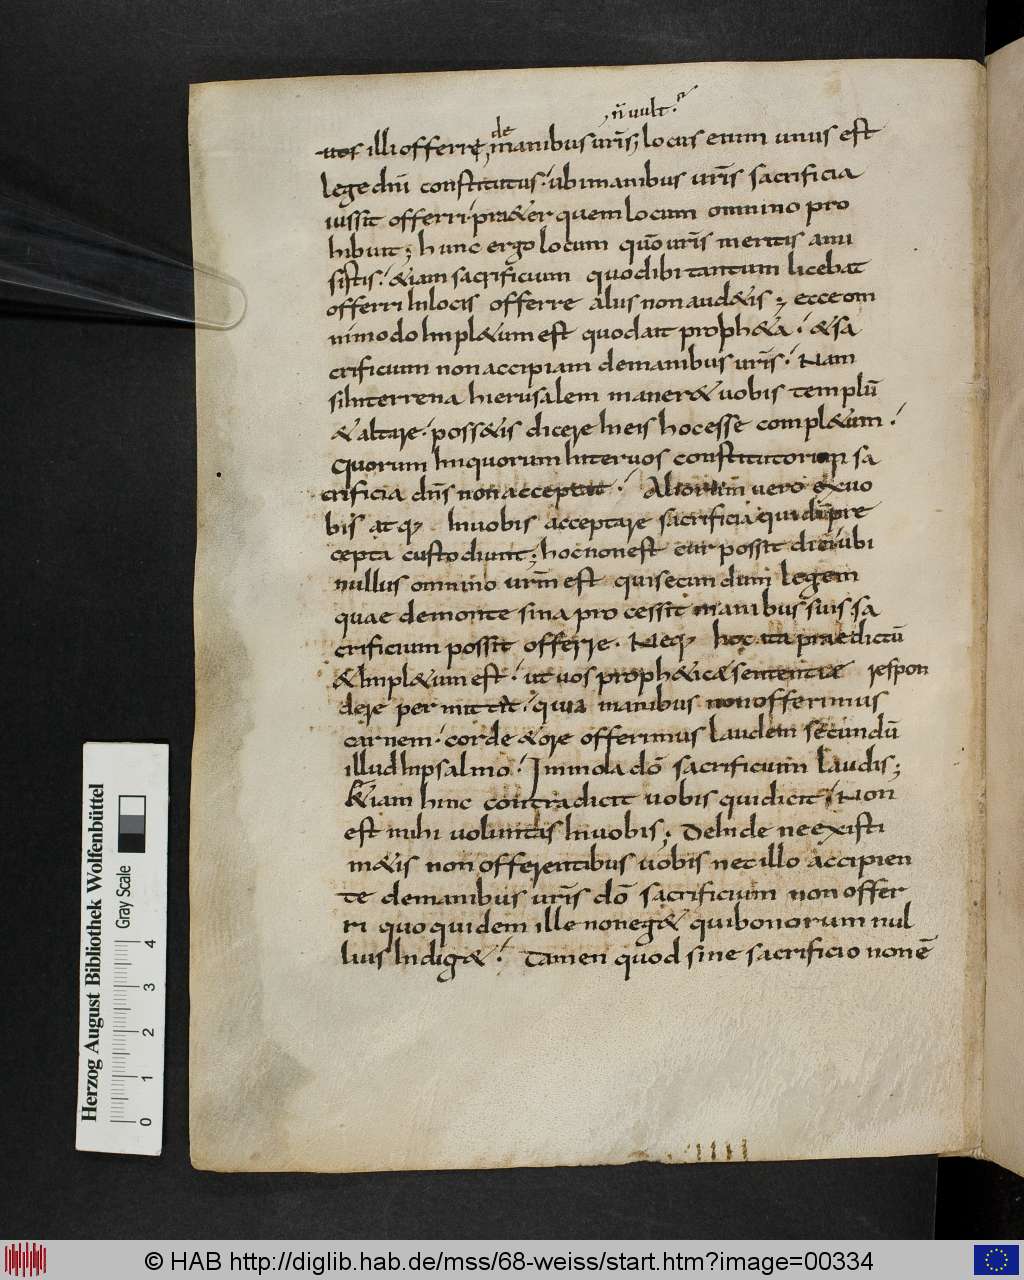 , n̄ uult. n̄
de
uos illi offerre, manibus ur̄is; locus enim unus est
lege dn̄i constitutus. ubi manibus ur̄is sacrificia
iussit offerri praeter quem locum omnino pro
hibuit; hunc ergo locum quō ur̄is meritis ami
sistis. & iam sacrificium quod ibi tantum licebat
offerri in locis offerre aliis non aud&is; ecce om
nimodo Impl&um est quod ait proph&a. & sa
crificium non accipiam de manibus ur̄is. Nam
si In terrena hierusalem maner& uobis templū
& altare. poss&is dicere In eis hoc esse compl&um.
quorum In quorum Inter uos constitutorum sa
crificia dn̄s non acceptat. Aliorum uero ex uo
bis atq; In uobis acceptare sacrificia qui dī pre
cepta custodiunt; hoc non est cur possit dici ubi
nullus omnino ur̄m est qui secundum legem
quae de monte sina processit manibus suis sa
crificium possit offerre. Neq; hoc ita praedictū
& Impl&um est. ut uos proph&icae sententiae respon
dere permittat. quia manibus non offerimus
carnem. corde & ore offerimus laudem secundū
illud In psalmo. Immola dō sacrificium laudis;
&iam hinc contradicit uobis qui dicit. Non
est mihi uoluntas In uobis; Dehinc ne existi
m&is non offerentibus uobis nec illo accipien
te de manibus ur̄is dō sacrificium non offer
ri quo quidem ille non eg& qui bonorum nul
lius Indig&. Tamen quod sine sacrificio non ē
Herzog August Bibliothek Wolfenbüttel
Gray Scale
0 1 2 3 4
© HAB http://diglib.hab.de/mss/68-weiss/start.htm?image=00334